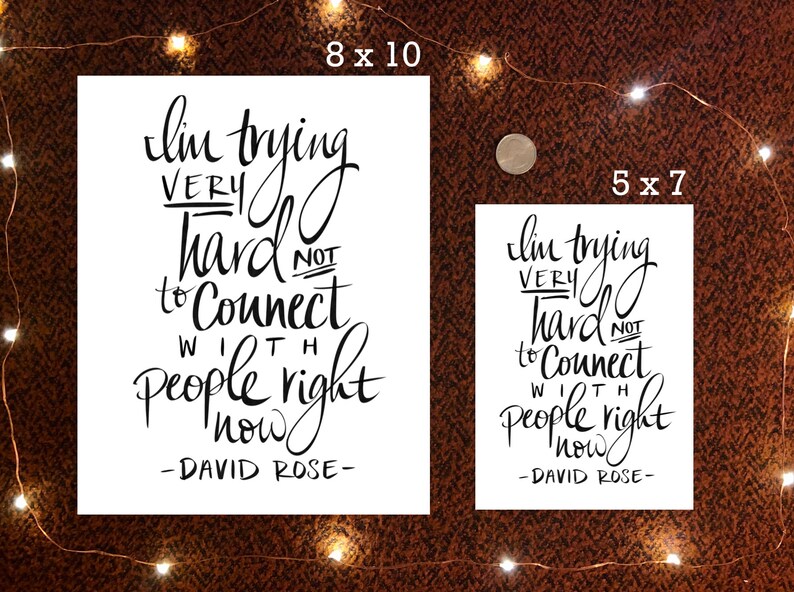 8 x 10
I'm trying
VERY
hard NOT
to Connect
WITH
people right
now
-DAVID ROSE-
5 x 7
I'm trying
VERY
hard NOT
to Connect
WITH
people right
now
-DAVID ROSE-